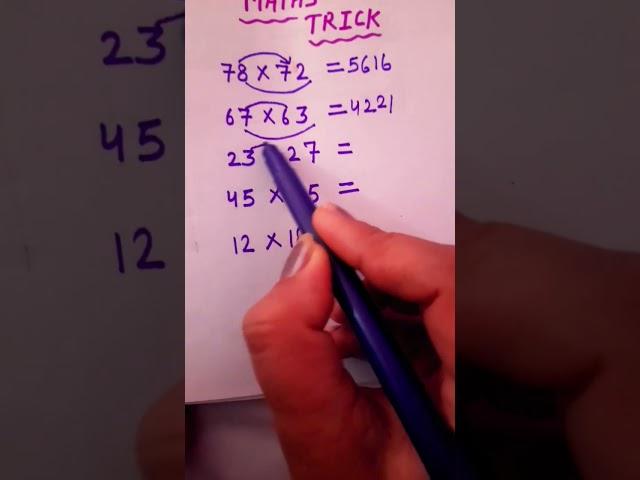 MATHS
TRICK
78 × 72 = 5616
67 × 63 = 4221
23 27 =
45 × 5 =
12 × 1
23
45
12